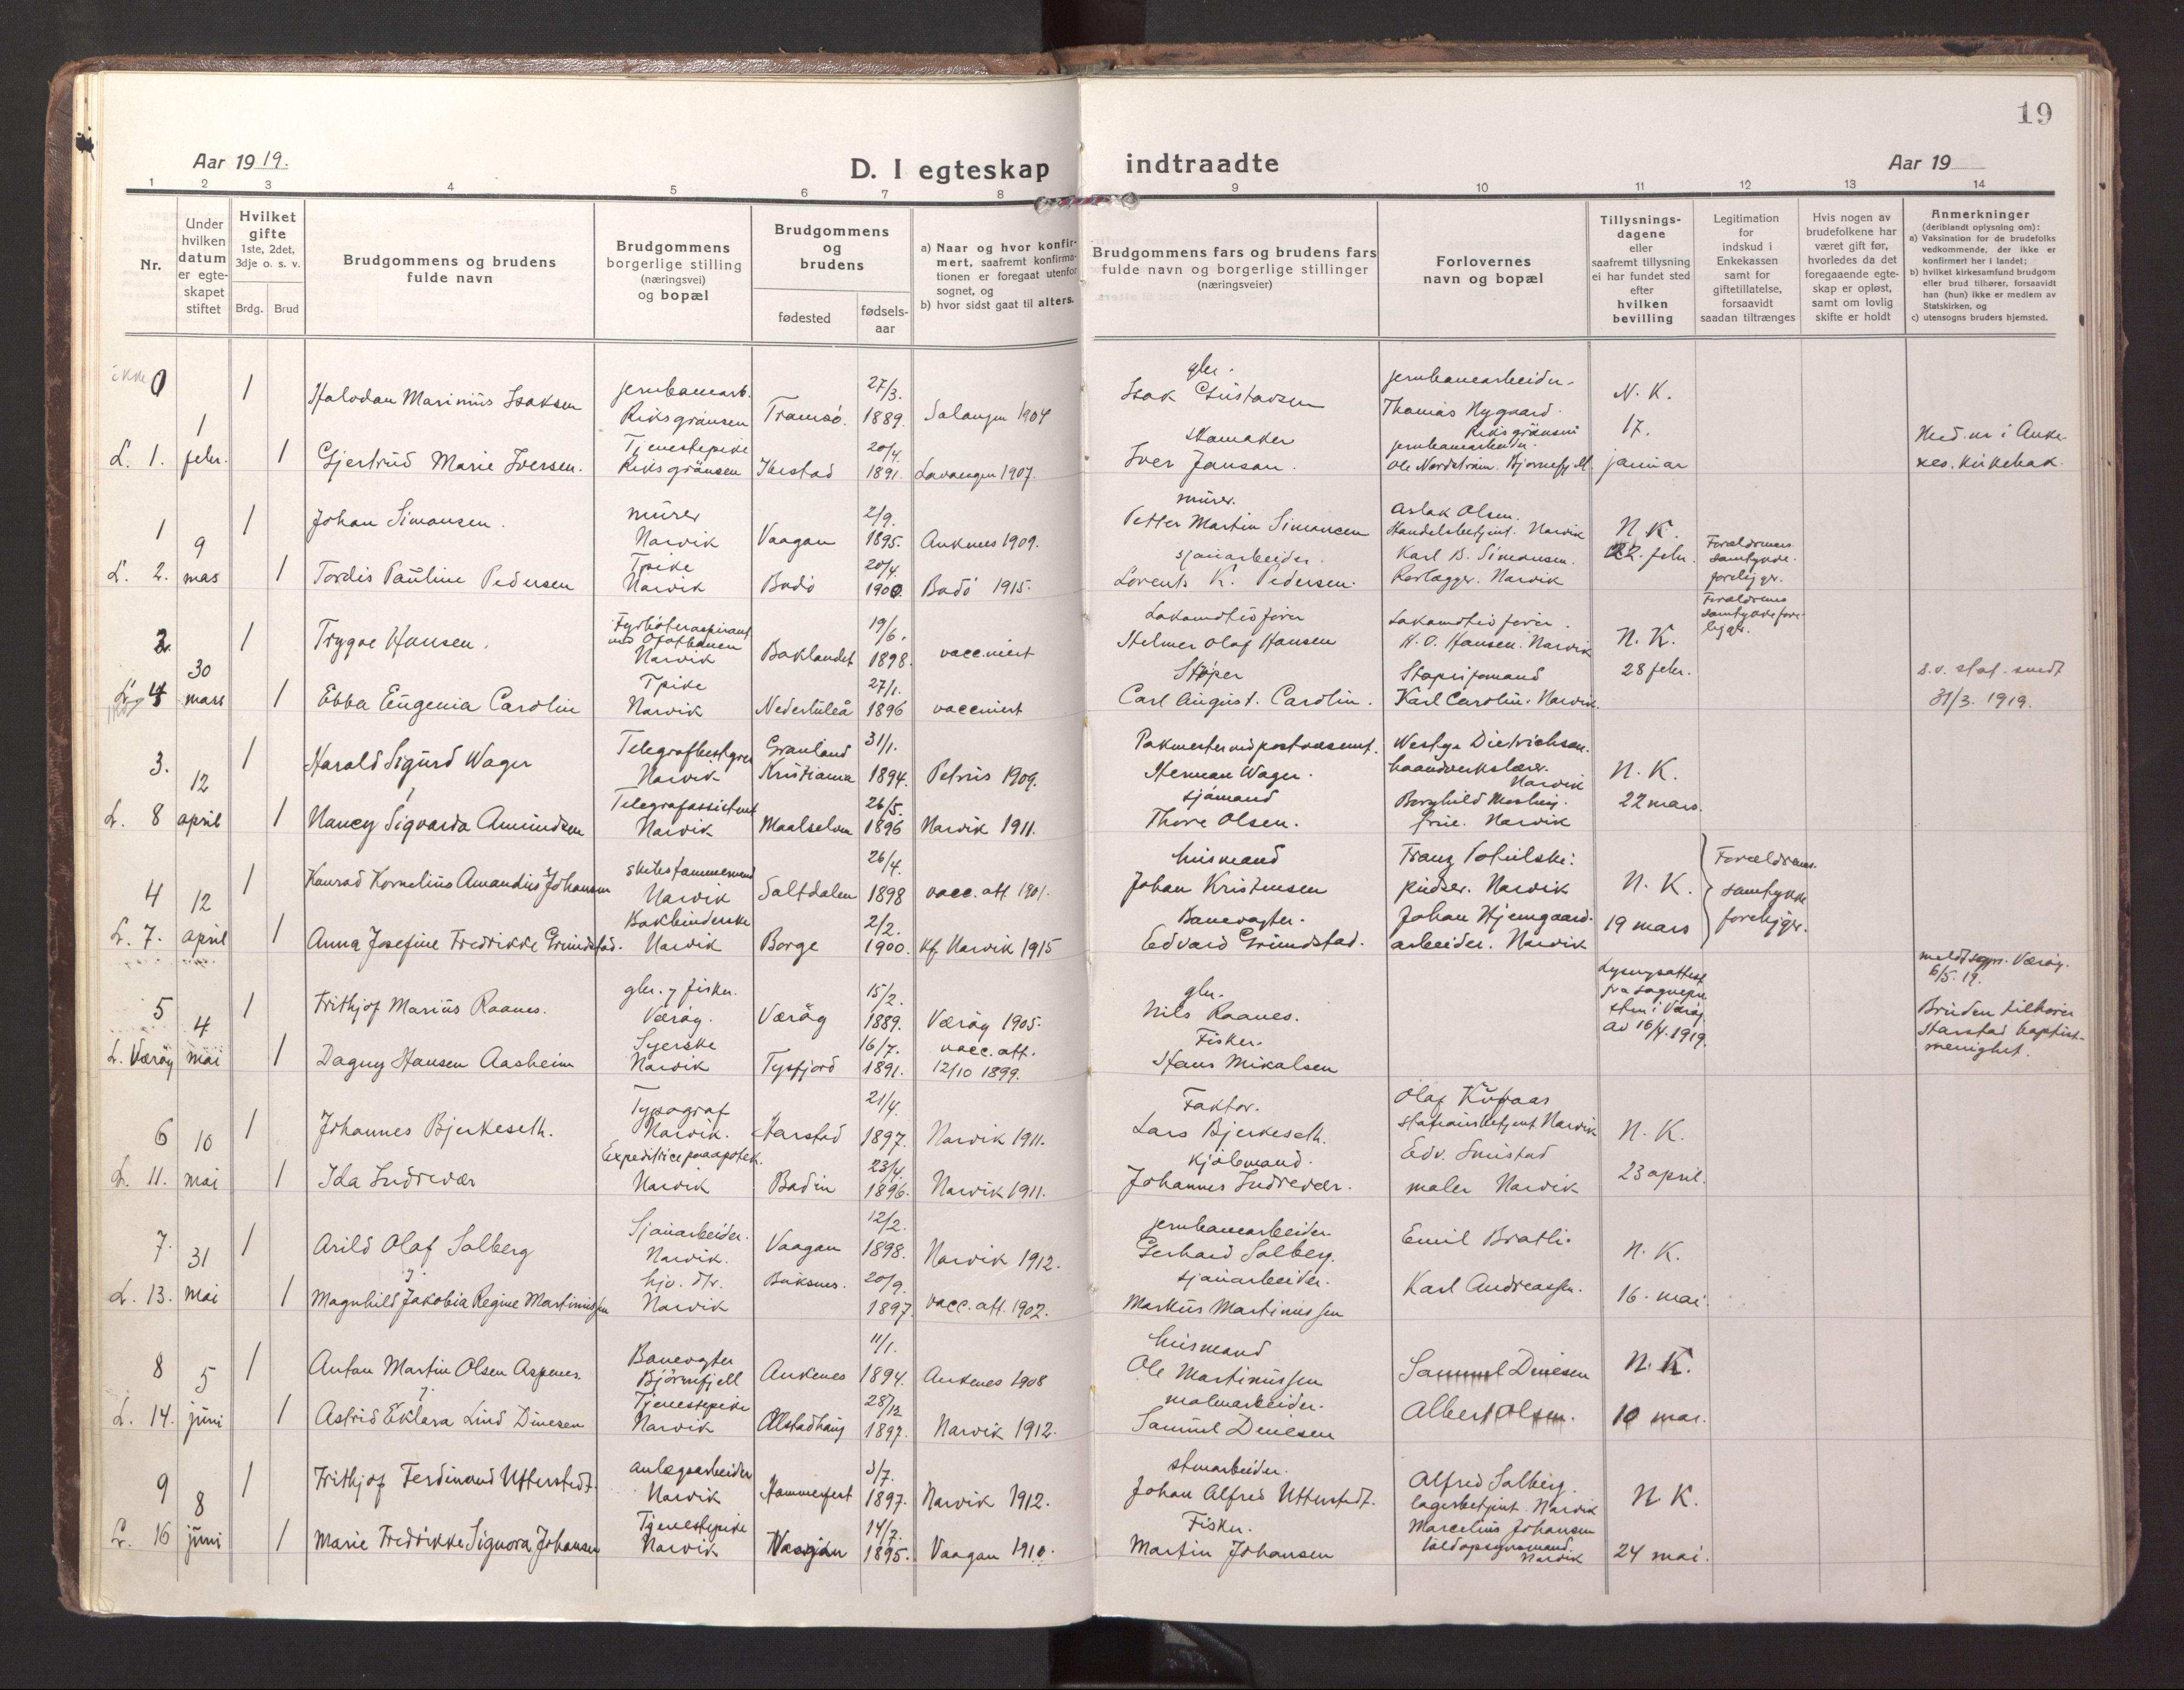 19
Aar 1919.
D. I egteskap indtraadte
Aar 19
1 2 3 4 5 6 7 8 9 10 11 12 13 14
Nr.
Under hvilken datum er egte-skapet stiftet
Hvilket gifte
1ste, 2det, 3dje o. s. v.
Brdg. Brud
Brudgommens og brudens fulde navn
Brudgommens borgerlige stilling (næringsvei) og bopæl
Brudgommens og brudens
fødested
fødsels-aar
a) Naar og hvor konfir-mert, saafremt konfirma-tionen er foregaat utenfor sognet, og
b) hvor sidst gaat til alters.
Brudgommens fars og brudens fars fulde navn og borgerlige stillinger (næringsveier)
Forlovernes navn og bopæl
Tillysnings-dagene eller saafremt tillysning ei har fundet sted efter hvilken bevilling
Legitimation for indskud i Enkekassen samt for giftetillatelse, forsaavidt saadan tiltrænges
Hvis nogen av brudefolkene har været gift før, hvorledes da det foregaaende egte-skap er opløst, samt om lovlig skifte er holdt
Anmerkninger
(deriblandt oplysning om):
a) Vaksination for de brudefolks vedkommende, der ikke er konfirmert her i landet;
b) hvilket kirkesamfund brudgom eller brud tilhører, forsaavidt han (hun) ikke er medlem av Statskirken, og
c) utensogns bruders hjemsted.
ikke 0 1 Halvdan Marinius Isaksen jernbanearb. Riksgränsen Tromsö. 27/3. 1889. Salangen 1904 gbr. Isak Gustavsen jernbanearbeider. Thomas Nygaard. Riksgränsen N. K. 17.
L. 1. 1 febr. 1 Gjertrud Marie Iversen. Tjenestepike Riksgränsen Ibestad 20/4. 1891. Lavangen 1907. skomaker Iver Jansan. jernbanearbeider. Ole Nordström. Bjørnefjell januar Med. nr i Anke-nes. kirkebok.
1 1 Johan Simonsen. murer Narvik Vaagan 2/9. 1895. Ankenes 1909. murer. Petter Martin Simonsen Aslak Olsen. Handelsbetjent. Narvik N. K. 22. febr.
L. 2. 9 mas 1 Tordis Pauline Pedersen Tpike Narvik Bodö 20/4 1900. Bodö 1915. sjauarbeider. Lorents K. Pedersen. Karl B. Simonsen. Rørlægger. Narvik Forældrenes samtykke foreligger.
2. 1 Trygve Hansen. Fyrböteraspirant ved Ofotbanen Narvik Baklandet 19/6. 1898. vaccinert Lokomotivförer Helmer Olaf Hansen Lokomotivförer. H. O. Hansen. Narvik N. K. Forældrenes samtykke fore-ligger.
L. 4 30 mars 1 Ebba Eugenia Carolin Tpike Narvik Nederluleå 27/1. 1896 vaccinert Støper Carl August. Carolin. Støperiformand Karl Carolin. Narvik. 28 febr. s.v. stat. sendt 31/3. 1919.
3. 1 Harald Sigurd Wager Telegrafbestyrer Narvik Grønland Kristiania 31/1. 1894. Petrus 1909. Pakmester ved postvæsenet. Herman Wager. Westye Diedrichsen. haandverkslærer. Narvik N. K.
L. 8 12 april 1 Nancy Sigvarda Amundsen Telegrafassistent Narvik Maalselven 26/5. 1896 Narvik 1911. sjömand Thore Olsen. Borghild Mosling. frue. Narvik 22 mars.
4 1 Konrad Kornelius Amandius Johansen skibstømmermand Narvik Saltdalen 26/4. 1898 vacc. att. 1901. husmand Johan Kristensen Franz Potulski: pudser. Narvik N. K. Forældrenes samtykke foreligger.
L. 7. 12 april 1 Anna Josefine Fredrikke Grundstad. Bokbinderske Narvik Borge 2/2. 1900. kf. Narvik 1915 Banevogter. Edvard Grundstad. Johan Hjemgaard. arbeider. Narvik 19 mars
5 1 Frithjof Marius Raanes. gbr. & fisker. Værøy. Værøy 15/2. 1889. Værøy 1905. gbr. Nils Raanes. Lysningsattest fra sognepre-sten i Værøy av 16/4. 1919. meldt sogn. Værøy. 6/5. 19.
L. Værøy 4 mai 1 Dagny Hansen Aasheim Syerske Narvik Tysfjord 16/7. 1891. vacc. att. 12/10 1899. Fisker. Hans Mikalsen Bruden tilhører Harstad baptist-menighet.
6 1 Johannes Bjerkeseth. Typograf Narvik. Harstad 21/4. 1897. Narvik 1911. Faktor. Lars Bjerkeseth. Olaf Kufaas stationsbetjent Narvik N. K.
L. 11. 10 mai 1 Ida Indrevær Expeditrice paa apotek. Narvik Bodin 23/4. 1896. Narvik 1911. kjölemand. Johannes Indrevær. Edv. Snustad maler Narvik 23 april.
7. 1 Arild Olaf Solberg Sjauarbeider. Narvik. Vaagan 12/2. 1898. Narvik 1912. jernbanearbeider. Gerhard Solberg. Emil Bratli. N. K.
L. 13. 31 mai 1 Magnhild Jakobia Regine Martinussen hjv. dtr. Narvik Buksnes. 20/9. 1897. vacc. att. 1902. sjauarbeider. Markus Martinussen Karl Andreassen. 16. mai.
8 1 Anton Martin Olsen Aspenes. Banevogter Björnefjell Ankenes 11/1. 1894. Ankenes 1908 husmand Ole Martinussen Samuel Dinesen N. K.
L. 14. 5 juni 1 Astrid Eklara Lind Dinesen Tjenestepike Narvik Alstadhaug 28/12 1897. Narvik 1912. malmarbeider. Samuel Dinesen Albert Olsen. 10 mai.
9 1 Frithjof Ferdinand Utterstedt. anlegsarbeider Narvik Hammerfest 3/7. 1897. Narvik 1912. stenarbeider. Johan Alfred Utterstedt. Alfred Solberg. lagerbetjent. Narvik N. K.
L. 16 8 juni 1 Marie Fredrikke Signora Johansen Tjenestepike Narvik Vaagan 14/7. 1895. Vaagan 1910. Fisker. Martin Johansen Marcelius Johansen Narvik 24 mai.